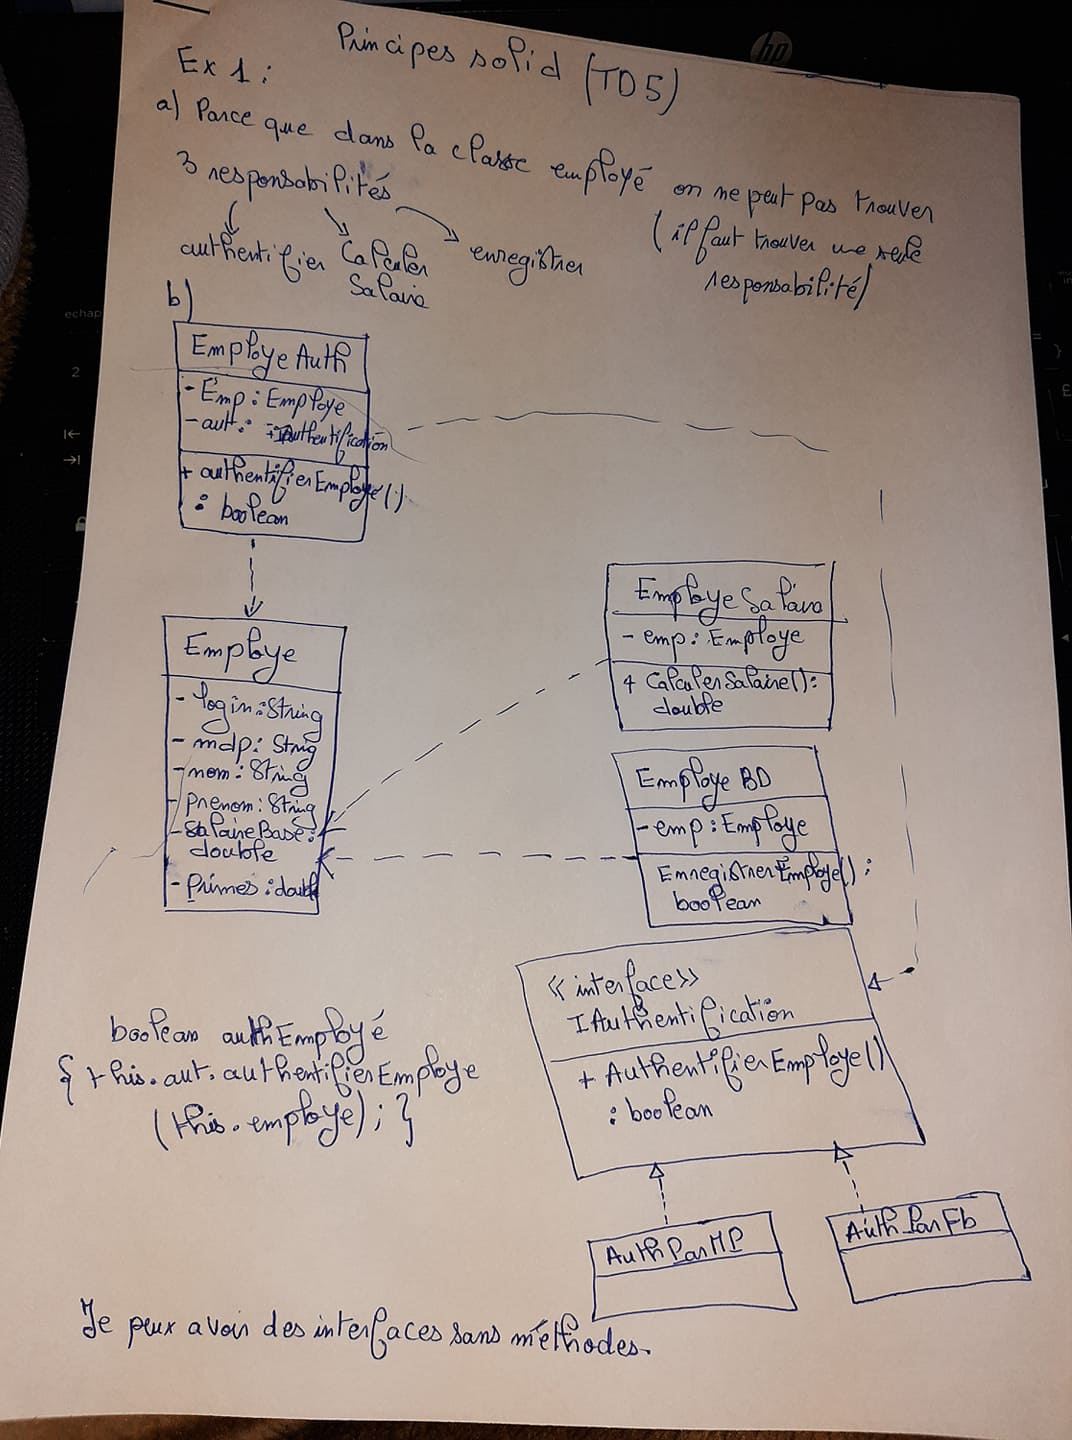 Principes solid (TD5)
Ex 1 :
a) Parce que dans la classe employé on ne peut pas trouver
3 responsabilités
(il faut trouver une seule
responsabilité)
authentifier
Calculer
Salaire
enregistrer
b)
EmployeAuth
- Emp : Employe
- aut : IAuthentification
+ authentifierEmploye()
: boolean
Employe
- login : String
- mdp : String
- nom : String
- prenom : String
- SalaireBase :
double
- Primes : double
EmployeSalaire
- emp : Employe
+ CalculerSalaire() :
double
Employe BD
- emp : Employe
EnregistrerEmploye() :
boolean
<<interface>>
IAuthentification
+ AuthentifierEmploye()
: boolean
AuthParMP
Auth_ParFb
boolean authEmployé
{ this.aut.authentifierEmploye
(this.employe); }
Je peux avoir des interfaces sans méthodes.
hp
echap
2